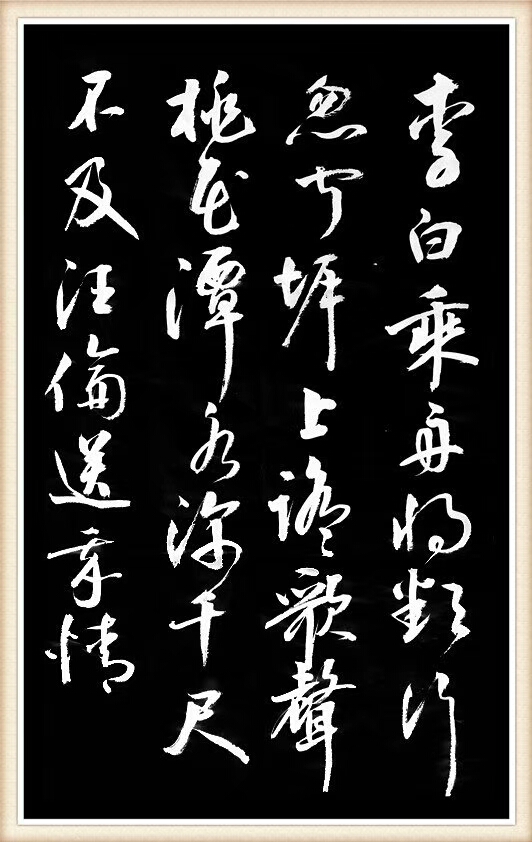 李白乘舟將欲行
忽聞堓上踏歌聲
桃花潭水深千尺
不及汪倫送我情